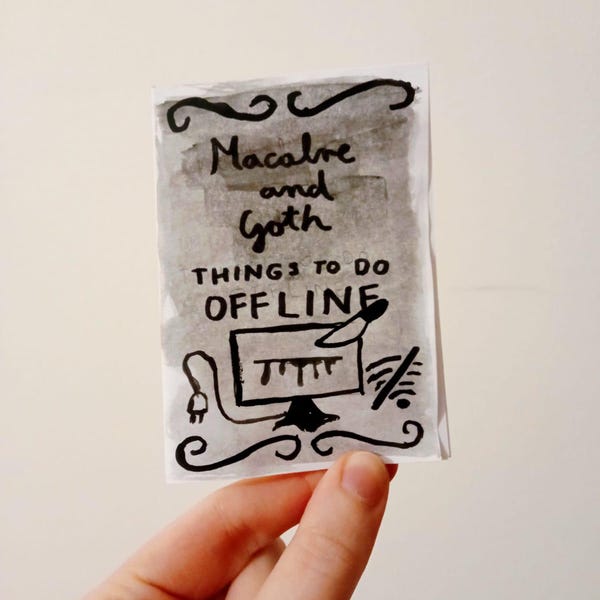 Macabre
and
Goth
THINGS TO DO
OFFLINE